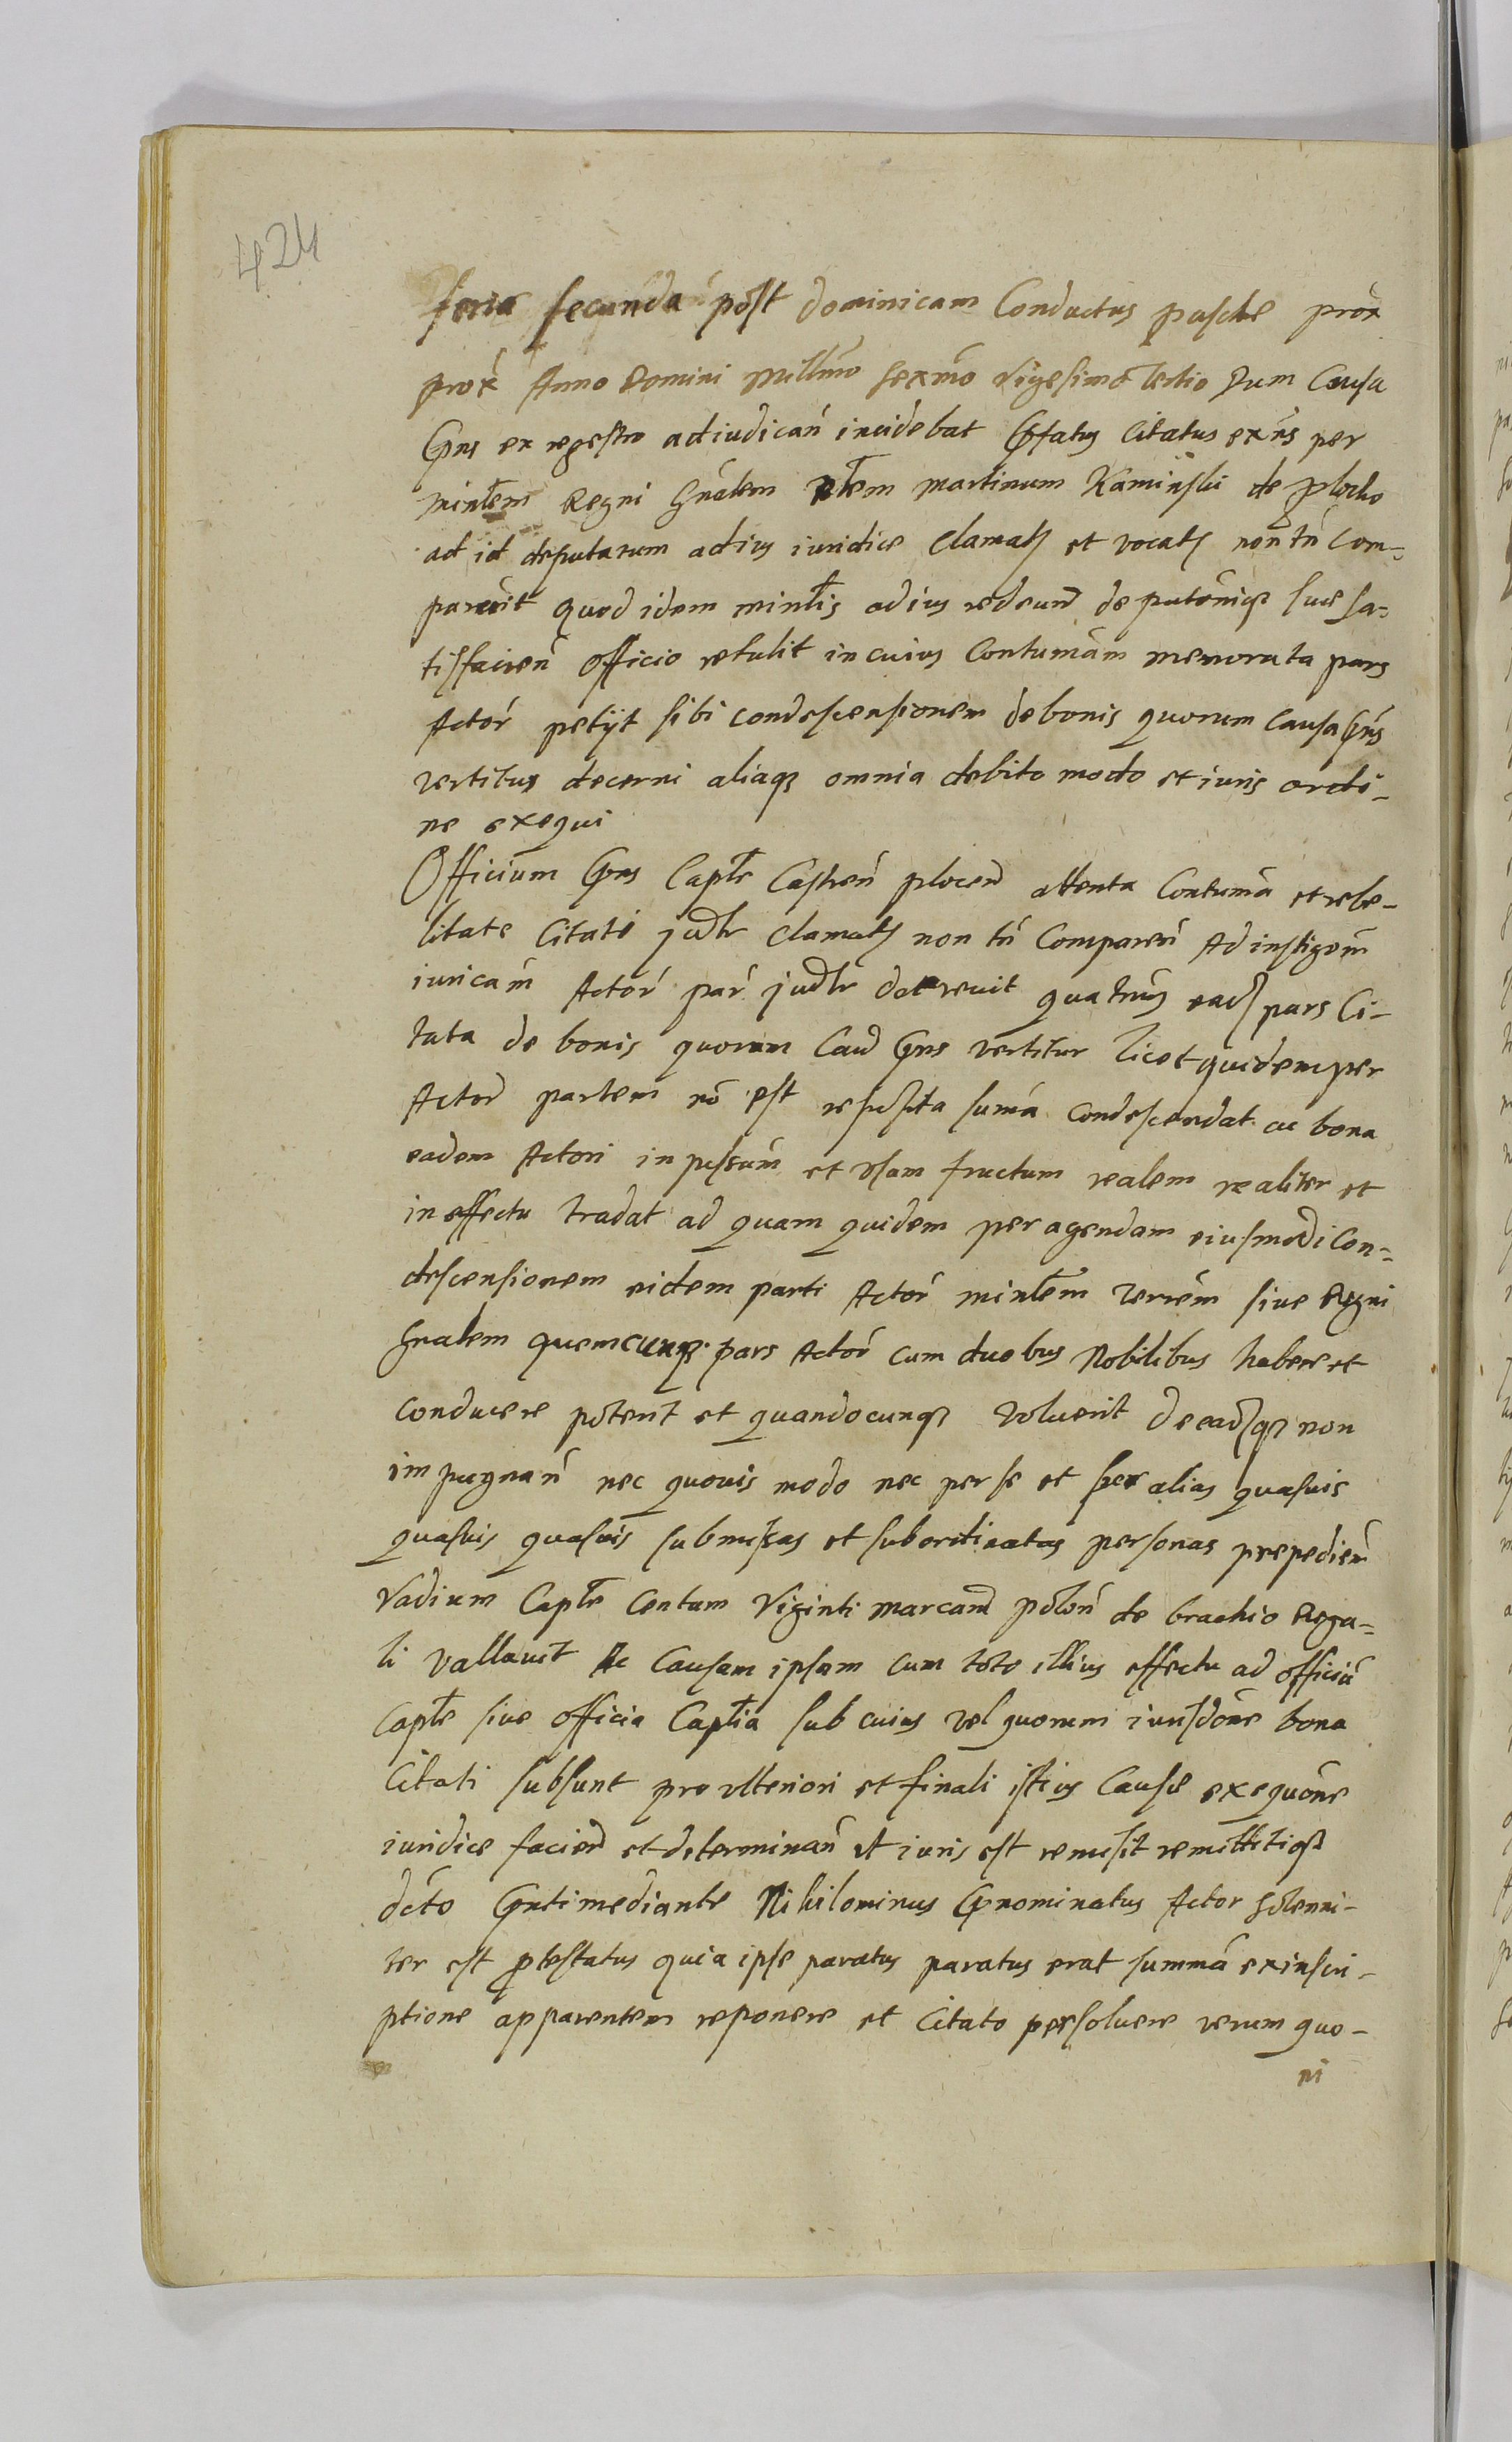 424
feria secunda post dominicam Conductus paschae prox
prox Anno Domini millmo sexmo vigesimo tertio Dum Causa
pns ex regestro adiudicań incidebat pfatus Citatus exńs per
minlem Regni Gnalem Martinum Kaminski de plocko
ad id deputatum ad ius iuridice clamatq et vocatq non tń Com-
paruit quod idem minlis ad ius redeund deputoniqз suae sa-
tisfacień officio retulit in cuius Contumám memorata pars
Actoŕ petijt sibi condescensionem de bonis quorum causa pńs
vertitur decerni aliaqз omnia debito modo et iuris ordi-
ne exequi
Officium pns Caple Castreń plocen attenta Contumá et rebe-
litate Citati judr clamatq non tń Compareń Ad instigoem
iuricám Actoŕ paŕ judr decrevit quatnus eadз pars Ci-
tata de bonis quorum Cau pns vertitur licet quidem per
Actor partem nō est reposita suma condescendat ac bona
eadem Actori in possum et usum fructum realem realiter et
in effectu tradat ad quam quidem peragendam eiusmodi Con-
descensionem eidem parti Actoŕ minlem terrém sive Regni
Gnalem quemcunqз pars Actoŕ cum duobus Nobilibus habere et
conducere poterit et quandocunqз voluerit de eadзqз non
impugnań nec quovis modo nec per se et per alias quasvis
quasvis quasvis submissas et subordinatas personas prepedień
vadium Caple Centum viginti marcard poloń de brachio Rega-
li vallavit Ac Causam ipsam cum toto illius effectu ad officiu
Caple sive officia Caplia sub cuius vel quorum iurisdone bona
Citati subsunt pro ulteriori et finali istius Causae exequone
iuridice faciend et determinań ut iuris est remisit remittitiqз
dcto pnti mediante Nihilominus pnominatus Actor solenni-
ter est ptestatus quia ipse paratus paratus erat summá ex inscri-
ptione apparentem reponere et Citato persolvere verum quo-
ni